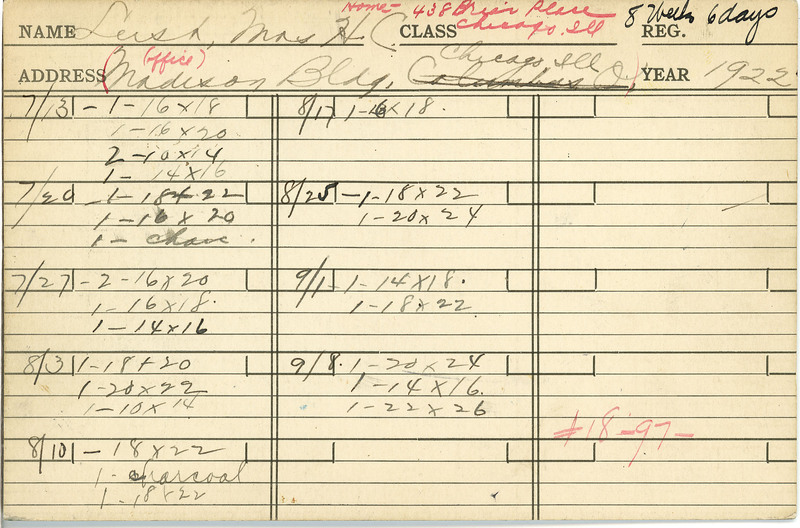 Home- 438 Brier Place
NAME Leisa, Mrs H C CLASS Chicago, Ill 8 Weeks 6 days REG.
(office) Chicago, Ill
ADDRESS (Madison Bldg, Columbus O), YEAR 1922
7/13 - 1 - 16 x 18
1 - 16 x 20
2 - 10 x 14
1 - 14 x 16
7/20 - 1 - 18 x 22
1 - 16 x 20
1 - chave.
7/27 - 2 - 16 x 20
1 - 16 x 18.
1 - 14 x 16
8/3 1 - 18 + 20
1 - 20 x 22
1 - 10 x 14
8/10 - 18 x 22
1 - charcoal
1 - 18 x 22
8/17 1 - 16 x 18.
8/25 - 1 - 18 x 22
1 - 20 x 24
9/1 - 1 - 14 x 18.
1 - 18 x 22
9/8. 1 - 20 x 24
1 - 14 x 16.
1 - 22 x 26
#18-97-